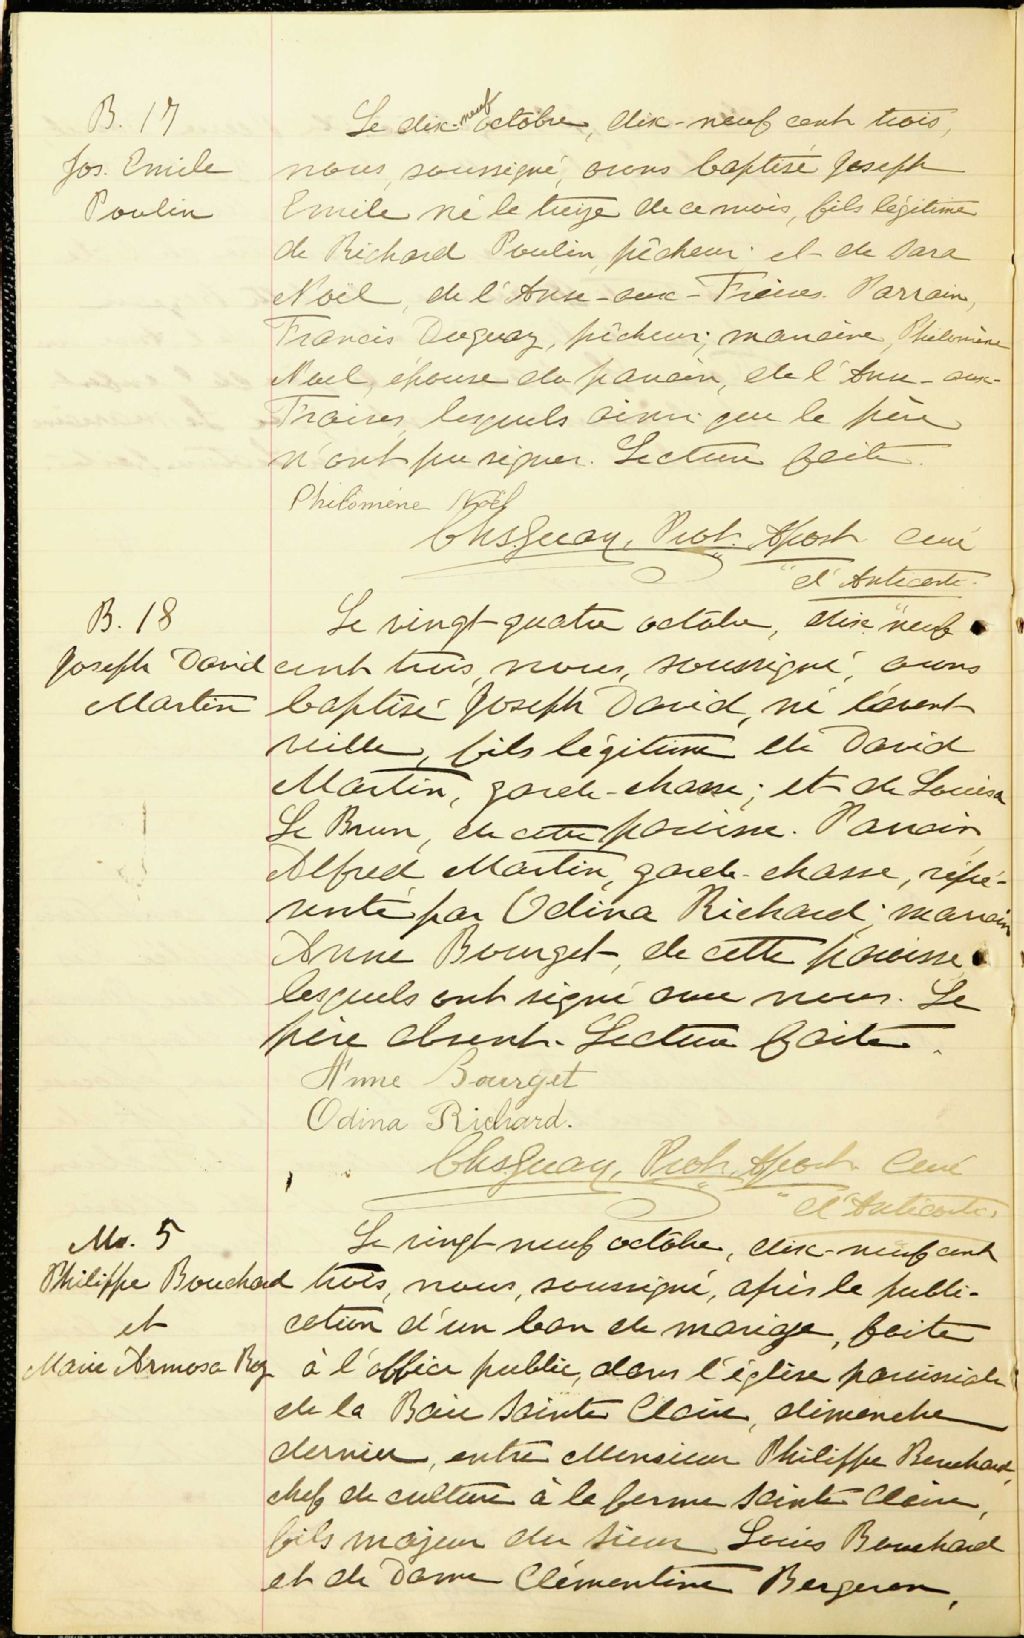 B. 17
Jos. Emile
Poulin
Le dix-neuf octobre, dix-neuf cent trois,
nous, soussigné, avons baptisé Joseph
Emile né le treize de ce mois, fils légitime
de Richard Poulin, pêcheur; et de Sara
Noël, de l'Anse-aux-Fraises. Parrain,
Francis Duguay, pêcheur; marraine, Philomène
Noel, épouse du parrain, de l'Anse-aux-
Fraises, lesquels ainsi que le père
n'ont pu signer. Lecture faite.
Philomène Noël
Chs. Guay, Prot. Apost. Curé
d'Anticosti.
B. 18
Joseph David
Martin
Le vingt-quatre octobre, dix-neuf
cent trois, nous, soussigné, avons
baptisé Joseph David, né l'avant
veille, fils légitime de David
Martin, garde-chasse; et de Louisa
Le Brun, de cette paroisse. Parrain,
Alfred Martin, garde-chasse, repré-
senté par Odina Richard; marraine
Anne Bourget, de cette paroisse,
lesquels ont signé avec nous. Le
père absent. Lecture faite.
Anne Bourget
Odina Richard.
Chs. Guay, Prot. Apost. Curé
d'Anticosti.
M. 5
Philippe Bouchard
et
Marie Armosa Roy
Le vingt-neuf octobre, dix-neuf cent
trois, nous, soussigné, après la publi-
cation d'un ban de mariage, faite
à l'office public, dans l'église paroissiale
de la Baie Sainte Claire, dimanche
dernier, entre Monsieur Philippe Bouchard,
chef de culture à la ferme Sainte Claire,
fils majeur du Sieur Louis Bouchard
et de Dame Clémentine Bergeron,